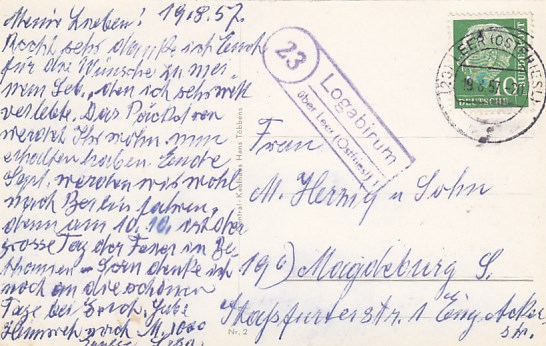 Meine Lieben! 19.8.57.
Recht sehr danke ich Euch
für die Wünsche zu mei-
nem Geb., den ich sehr nett
verlebte. Das Päckchen
werdet Ihr wohl nun
erhalten haben. Ende
Sept. werden wir wohl
nach Berlin fahren,
denn am 10.10. ist der
grosse Tag der Feier in Be-
thanien - Gern denke ich
noch an die schönen
Tage bei Euch, habe
Heimweh nach M. 1000
23
Logabirum
über Leer (Ostfriesl)
(23) LEER (OSTFRIESL)
19.8.57
10
DEUTSCHE
BUNDESPOST
Zentral-Kaufhaus Hans Többens
Nr. 2
Frau
M. Herzig u Sohn
19b) Magdeburg S.
Stassfurterstr. 1 Eing. Acker-
str.